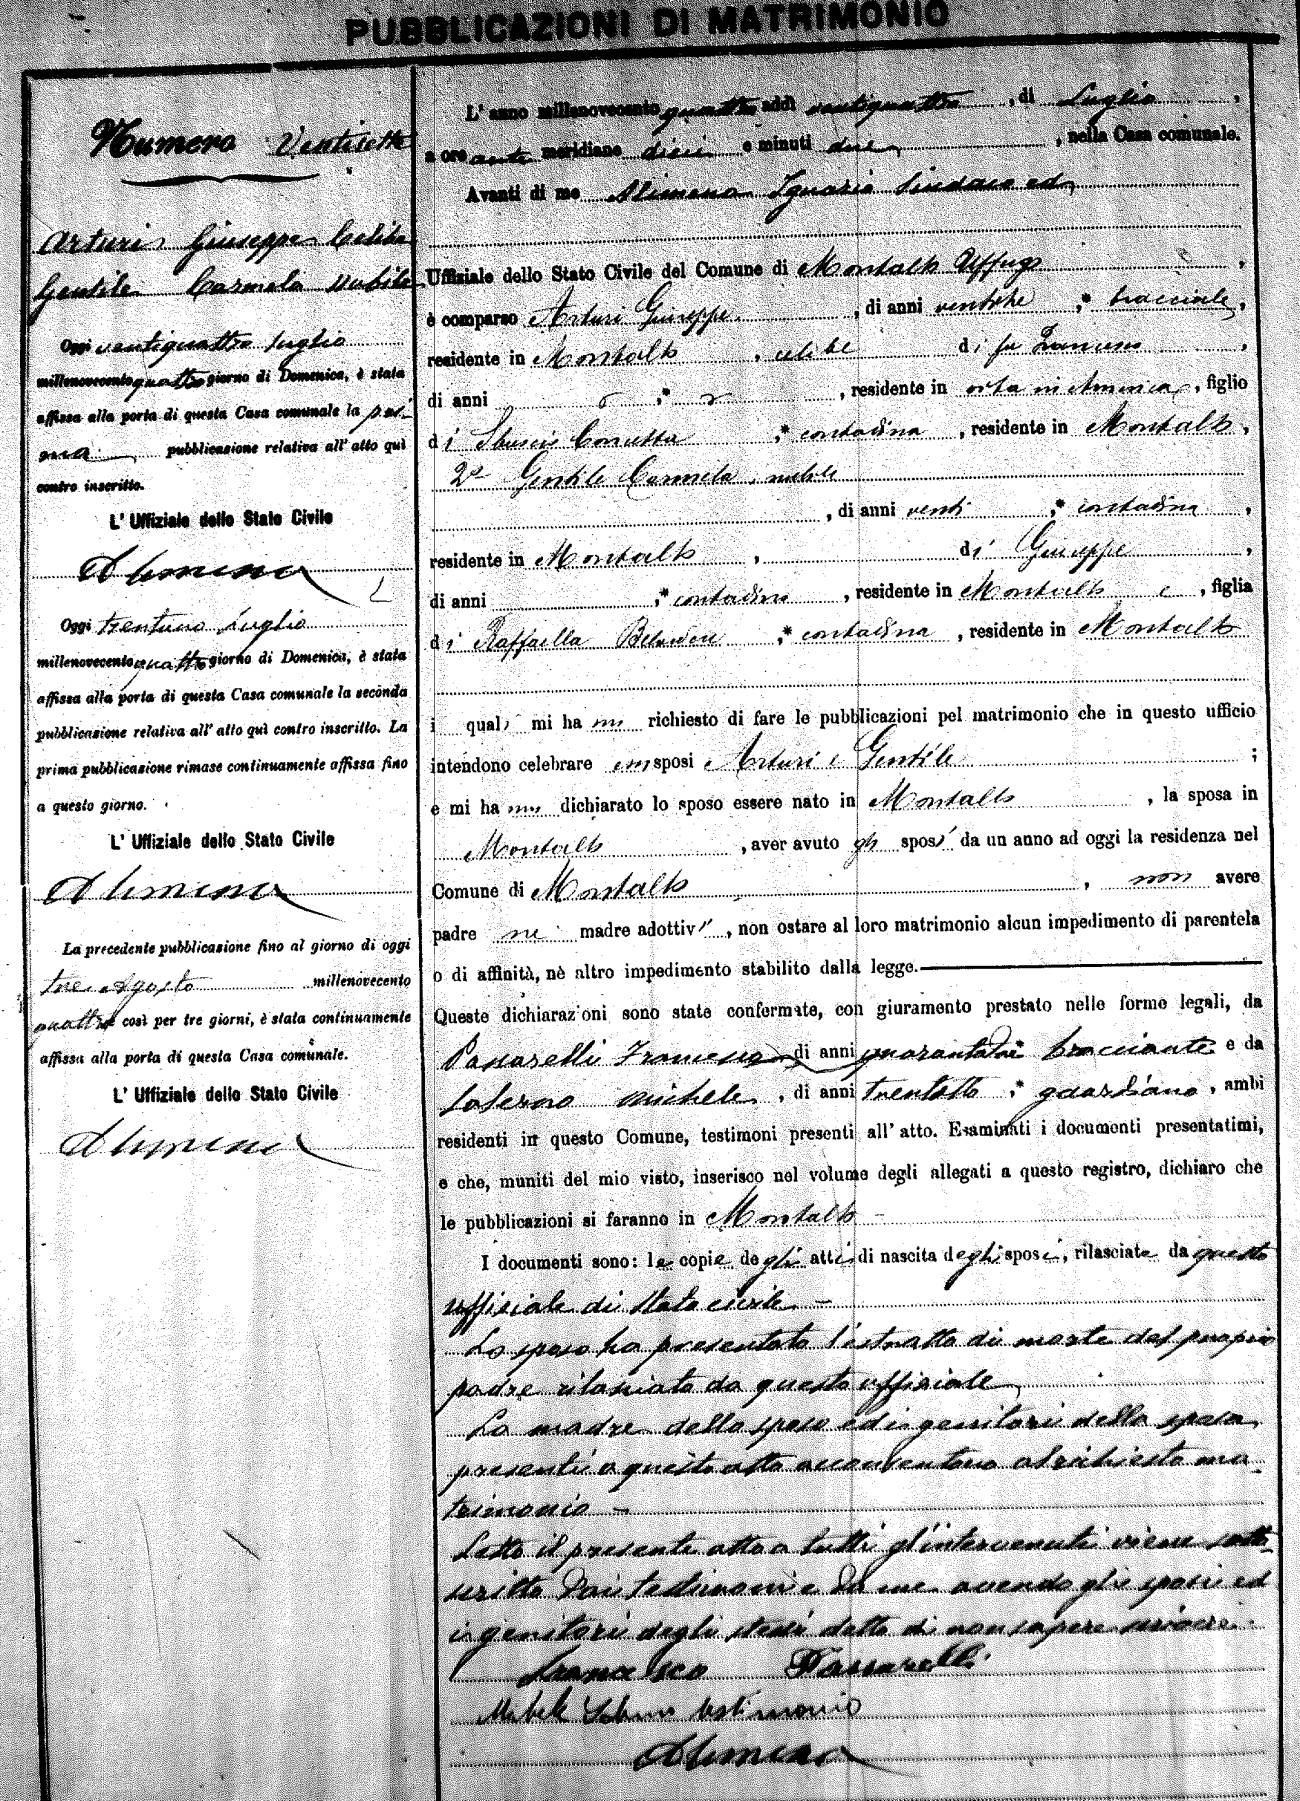 PUBBLICAZIONI DI MATRIMONIO
Numero Ventisette
Arturi Giuseppe Celibe
Gentile Carmela Nubile
Oggi ventiquattro luglio
millenovecento quattro giorno di Domenica, è stata
affissa alla porta di questa Casa comunale la pri-
ma pubblicazione relativa all' atto quì
contro inscritto.
L' Uffiziale dello Stato Civile
Alimena
Oggi trentuno luglio
millenovecento quattro giorno di Domenica, è stata
affissa alla porta di questa Casa comunale la seconda
pubblicazione relativa all' atto quì contro inscritto. La
prima pubblicazione rimase continuamente affissa fino
a questo giorno.
L' Uffiziale dello Stato Civile
Alimena
La precedente pubblicazione fino al giorno di oggi
tre Agosto millenovecento
quattro così per tre giorni, è stata continuamente
affissa alla porta di questa Casa comunale.
L' Uffiziale dello Stato Civile
Alimena
L' anno millenovecento quattro addì ventiquattro, di Luglio,
a ore ante meridiane dieci e minuti due, nella Casa comunale.
Avanti di me Alimena Ignazio Sindaco ed
Uffiziale dello Stato Civile del Comune di Montalto Uffugo,
è comparso Arturi Giuseppe, di anni, * bracciale,
residente in Montalto, celibe di fu Francesco,
di anni, * residente in morto in America, figlio
di Concetta, * contadina, residente in Montalto,
2° Gentile Carmela, nubile
, di anni venti, * contadina,
residente in Montalto, di Giuseppe,
di anni, * contadino, residente in Montalto e, figlia
di Raffaella Belvedere, * contadina, residente in Montalto
i quali mi hanno richiesto di fare le pubblicazioni pel matrimonio che in questo ufficio
intendono celebrare essi sposi Arturi e Gentile;
e mi hanno dichiarato lo sposo essere nato in Montalto, la sposa in
Montalto, aver avuto gli sposi da un anno ad oggi la residenza nel
Comune di Montalto, non avere
padre nè madre adottivi, non ostare al loro matrimonio alcun impedimento di parentela
o di affinità, nè altro impedimento stabilito dalla legge.
Queste dichiarazioni sono state confermate, con giuramento prestato nelle forme legali, da
Passarelli Francesco di anni * bracciante e da
Michele, di anni trentotto, * guardiano, ambi
residenti in questo Comune, testimoni presenti all' atto. Esaminati i documenti presentatimi,
e che, muniti del mio visto, inserisco nel volume degli allegati a questo registro, dichiaro che
le pubblicazioni si faranno in Montalto
I documenti sono: le copie degli atti di nascita degli sposi, rilasciate da questo
uffiziale di stato civile
Lo sposo ha presentato l'estratto di morte del proprio
padre rilasciato da questo uffiziale
La madre dello sposo ed i genitori della sposa
presenti a questo atto acconsentono al richiesto ma-
trimonio
Letto il presente atto a tutti gl'intervenuti viene sotto-
scritto dai testimoni e da me avendo gli sposi ed
i genitori degli stessi detto di non sapere scrivere.
Francesco Passarelli
Michele testimonio
Alimena